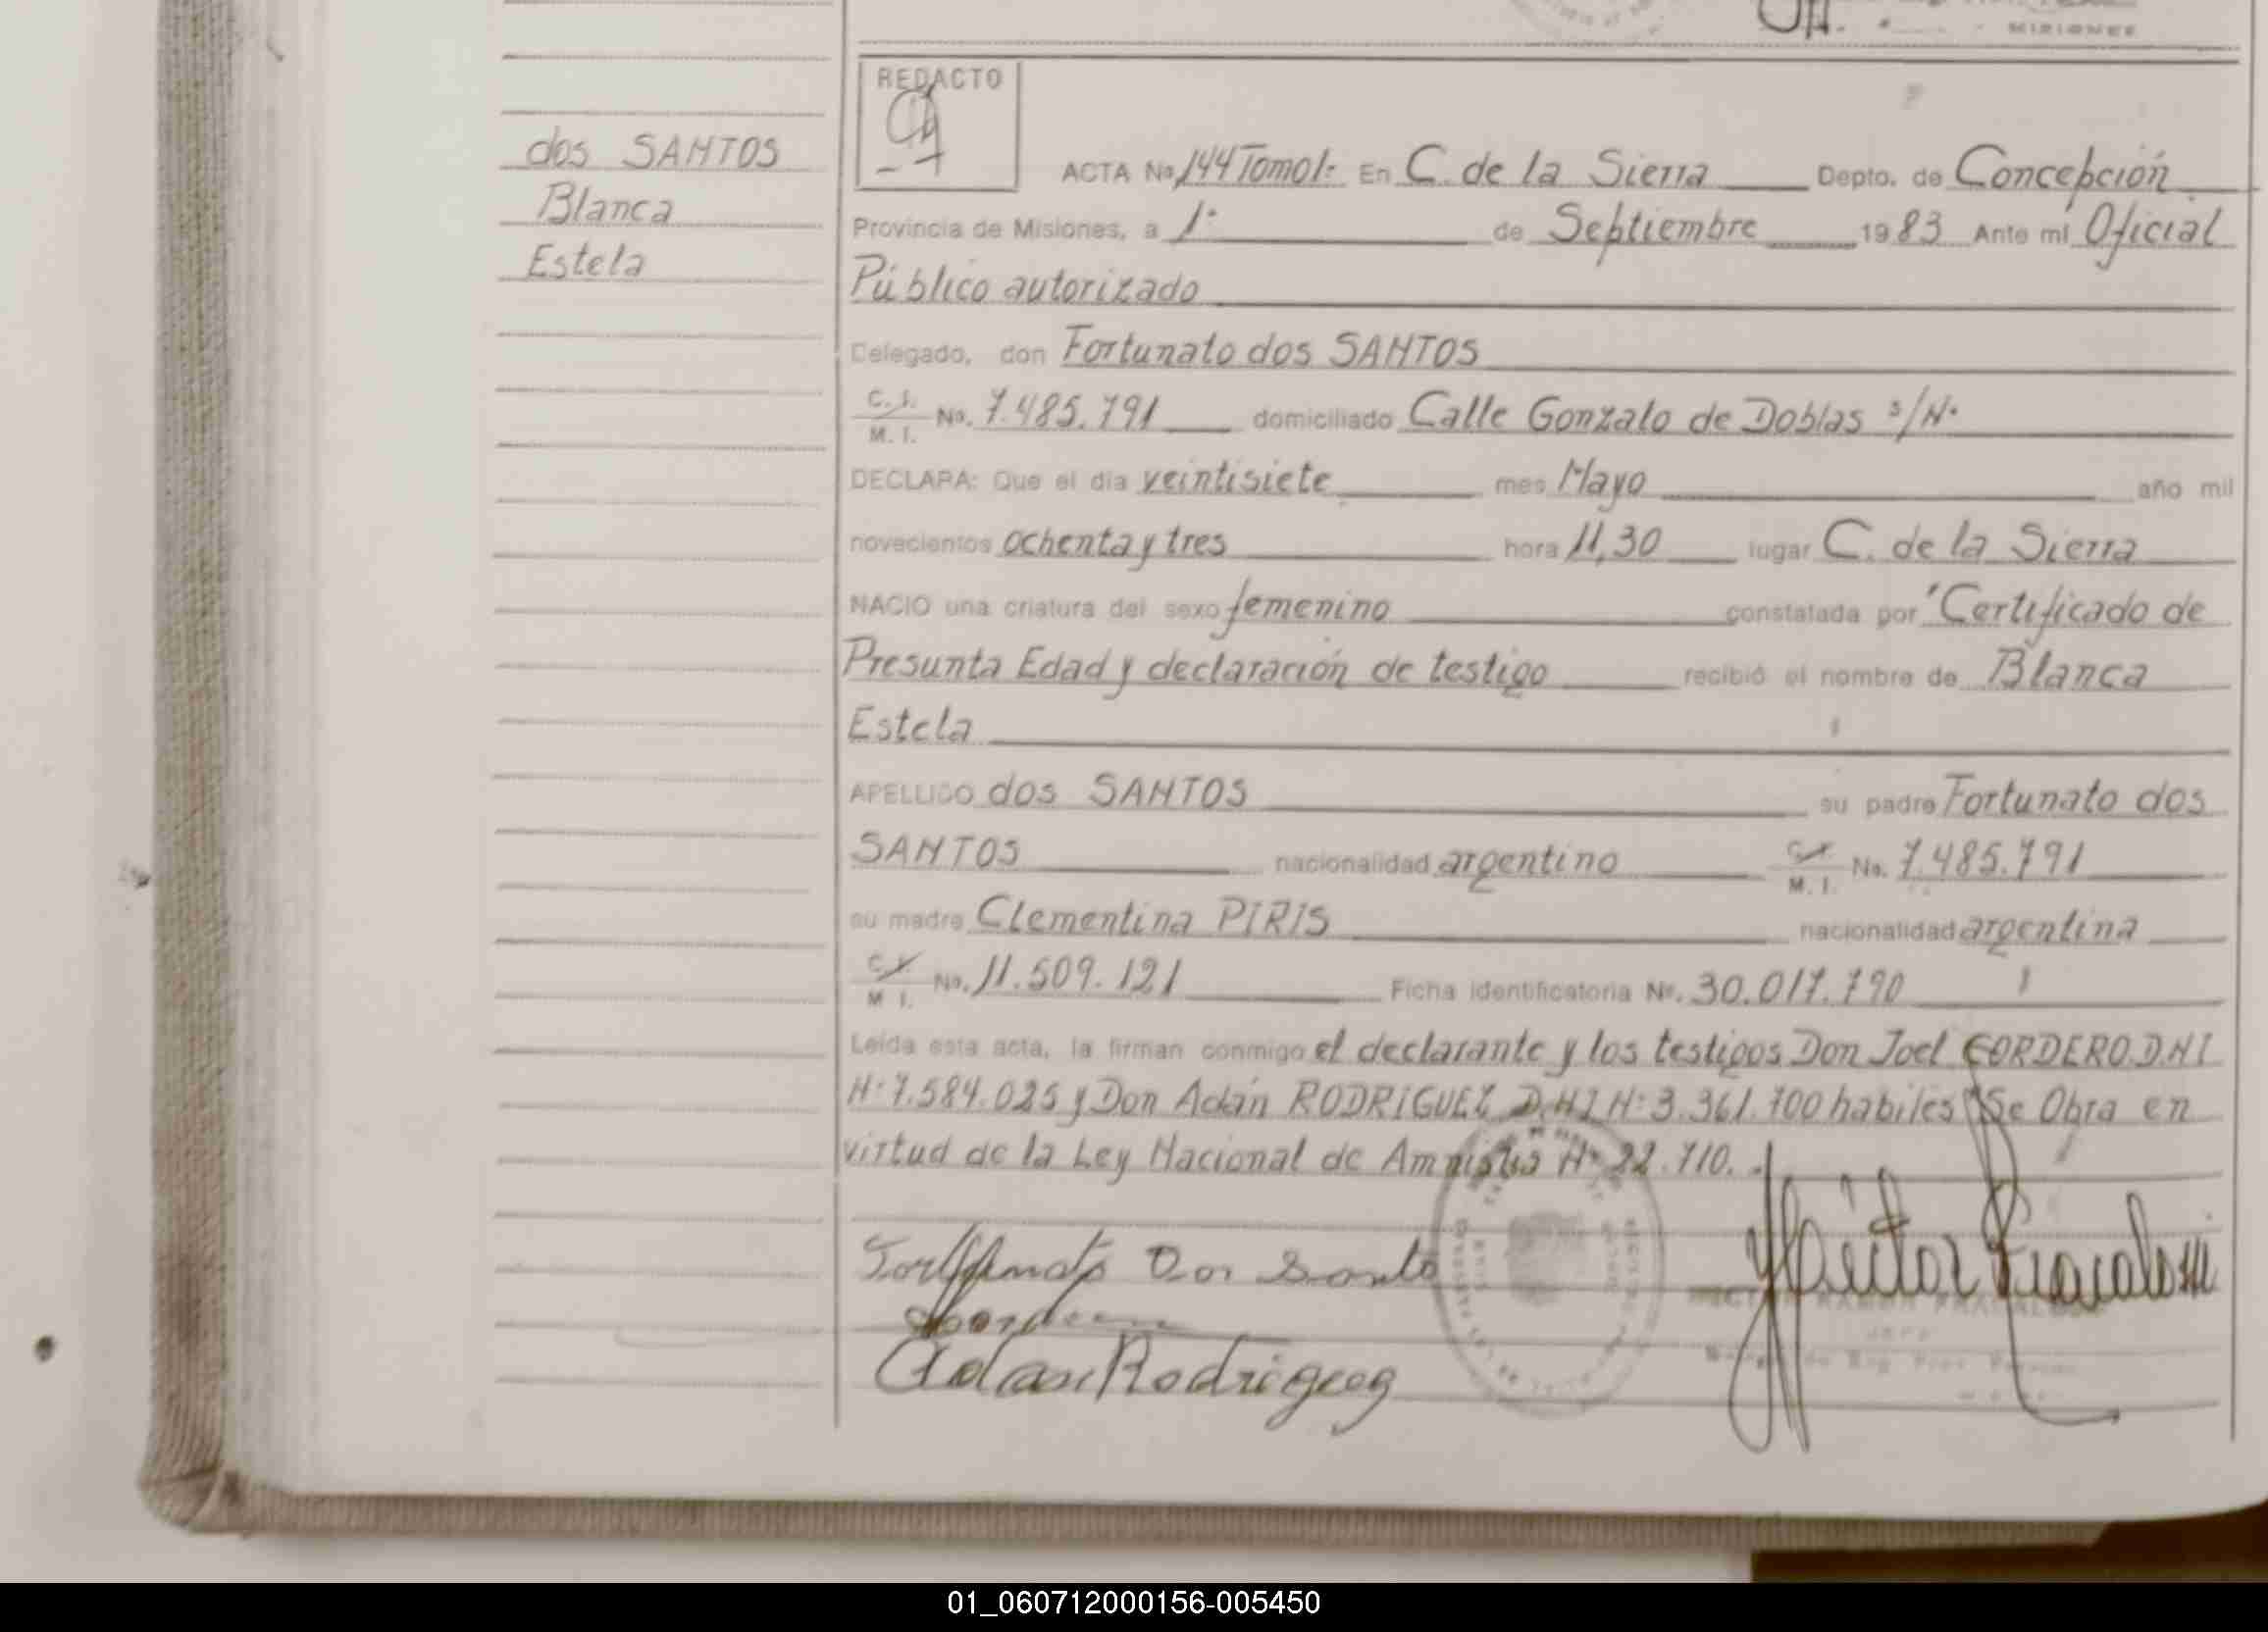 MISIONES
REDACTO
dos SANTOS
Blanca
Estela
ACTA No 144 Tomo 1º En C. de la Sierra Depto. de Concepción
Provincia de Misiones, a 1º de Septiembre 1983 Ante mí Oficial
Público autorizado
Delegado, don Fortunato dos SANTOS
C. I. M. I. No. 7.485.791 domiciliado Calle Gonzalo de Doblas s/Nº
DECLARA: Que el día veintisiete mes Mayo año mil
novecientos ochenta y tres hora 11,30 lugar C. de la Sierra
NACIO una criatura del sexo femenino constatada por "Certificado de
Presunta Edad y declaración de testigo recibió el nombre de Blanca
Estela
APELLIDO dos SANTOS su padre Fortunato dos
SANTOS nacionalidad argentino C. I. M. I. No. 7.485.791
su madre Clementina PIRIS nacionalidad argentina
C. I. M. I. No. 11.509.121 Ficha identificatoria No. 30.017.790
Leída esta acta, la firman conmigo el declarante y los testigos Don Joel CORDERO D.N.I
Nº 7.584.025 y Don Adán RODRIGUEZ D.N.I Nº 3.361.700 habiles "Se Obra en
virtud de la Ley Nacional de Amnistia Nº 22.710.
Fortunato Dos Santo
Adan Rodriguez
Hector
HECTOR RAMON
JEFE
01_060712000156-005450